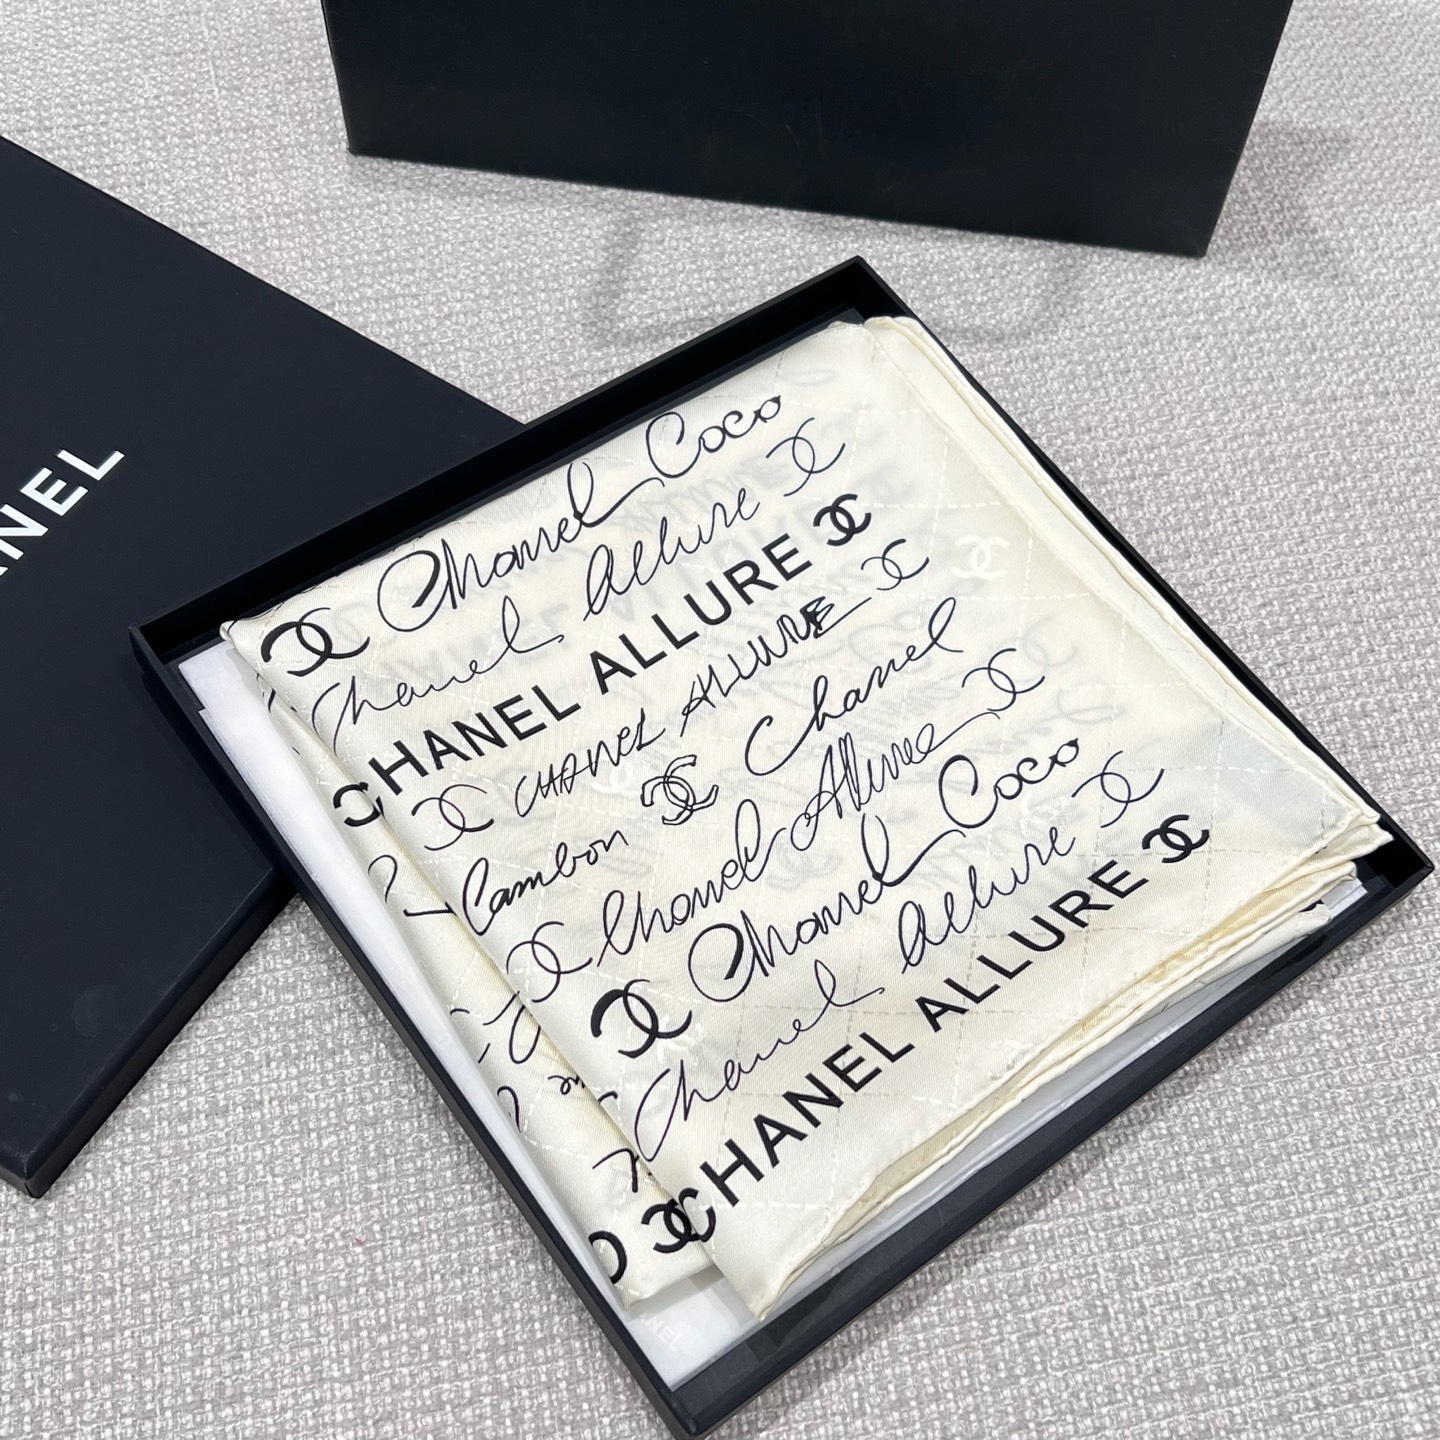 ANEL
Chanel Coco
Chanel Allure
CHANEL ALLURE
CHANEL ALLURE
Chanel
Cambon
Chanel Allure
Chanel Coco
Chanel Allure
CHANEL ALLURE
NEL